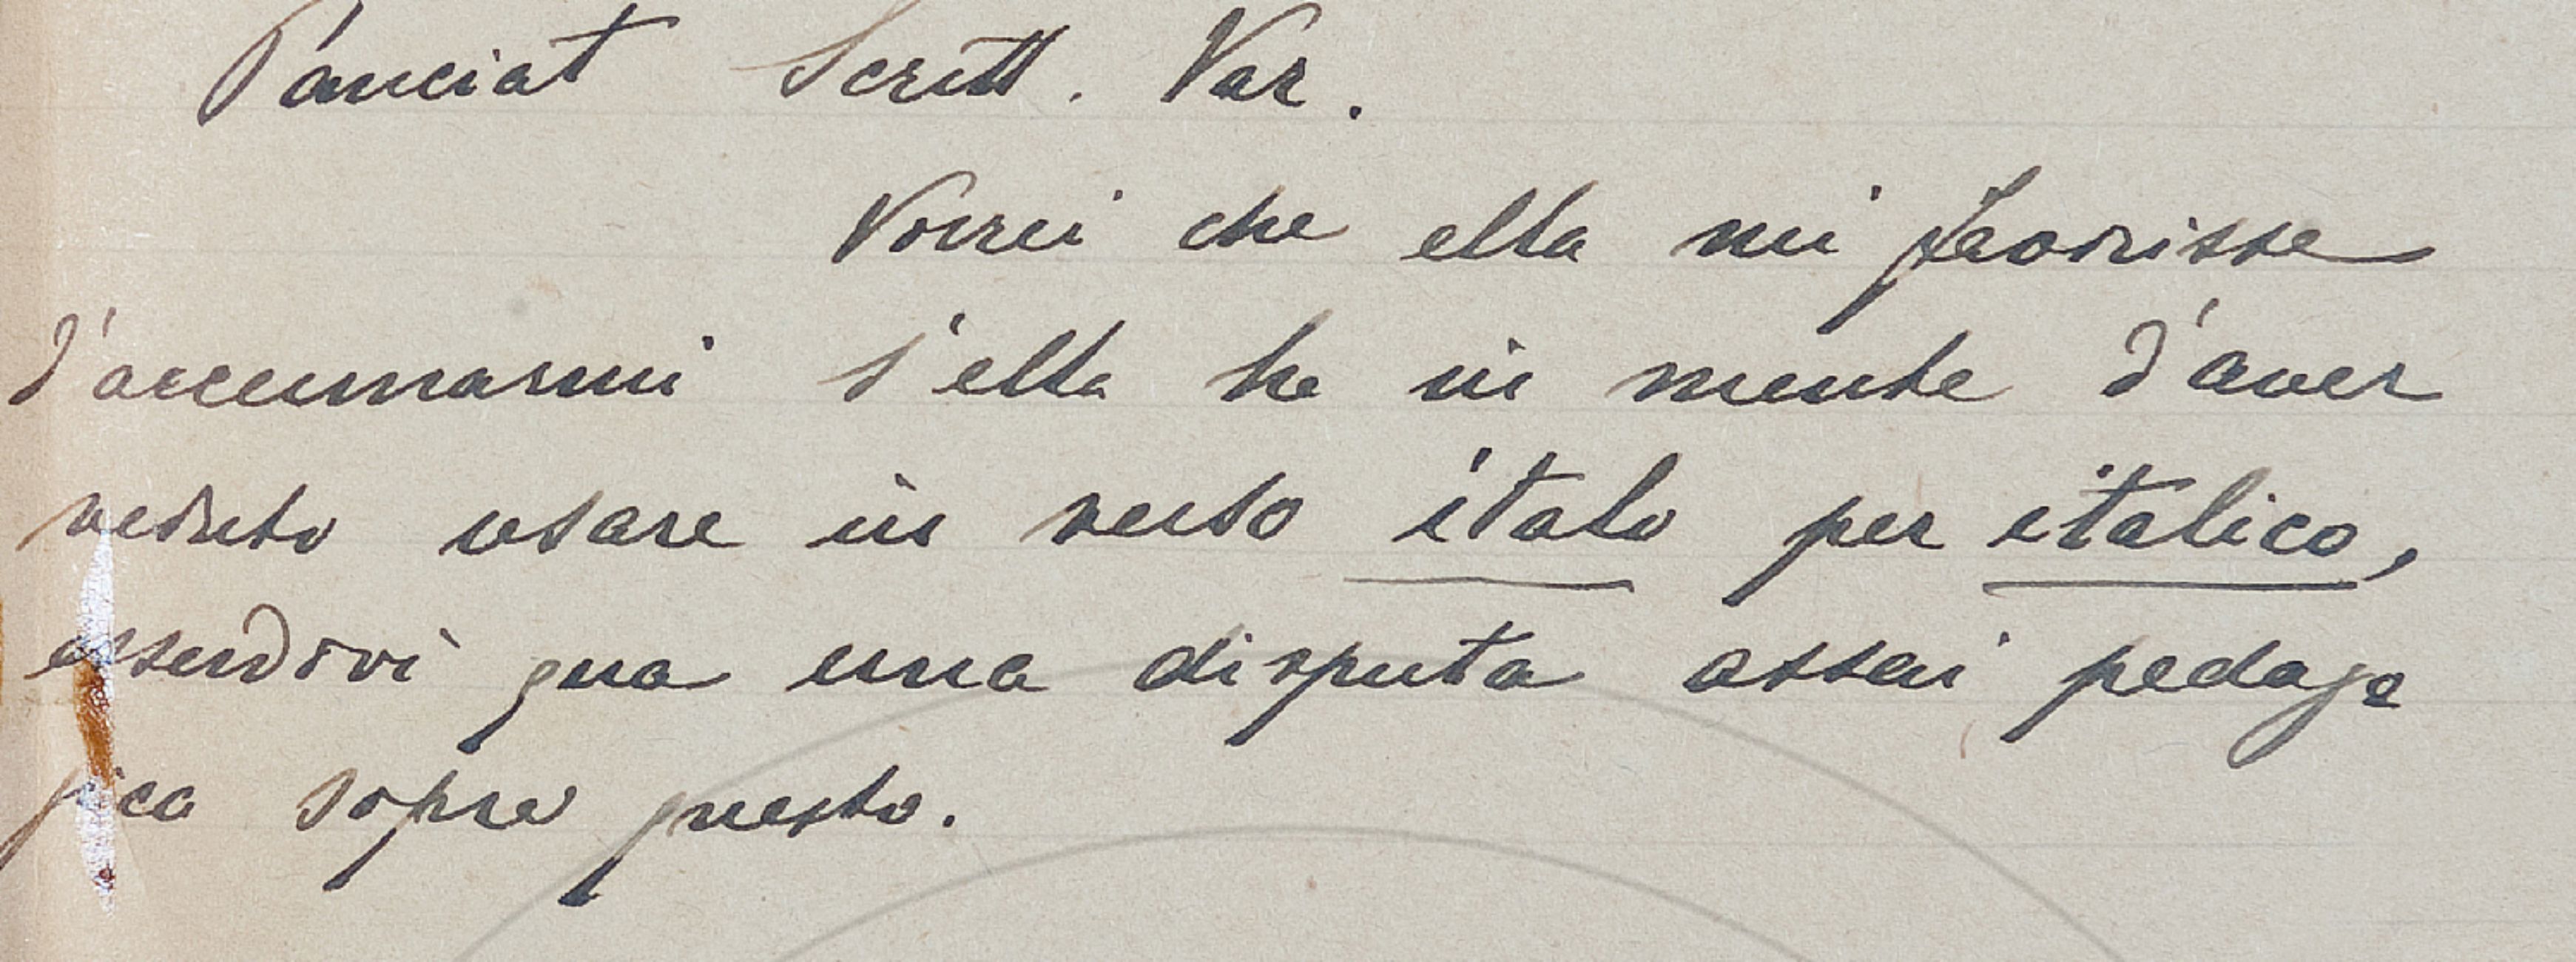 Panciat Scritt. Var.
Vorrei che ella mi favorisse
d'accennarmi s'ella ha in mente d'aver
veduto usare in verso italo per italico,
essendovi qua una disputa assai pedago
gica sopra questo.